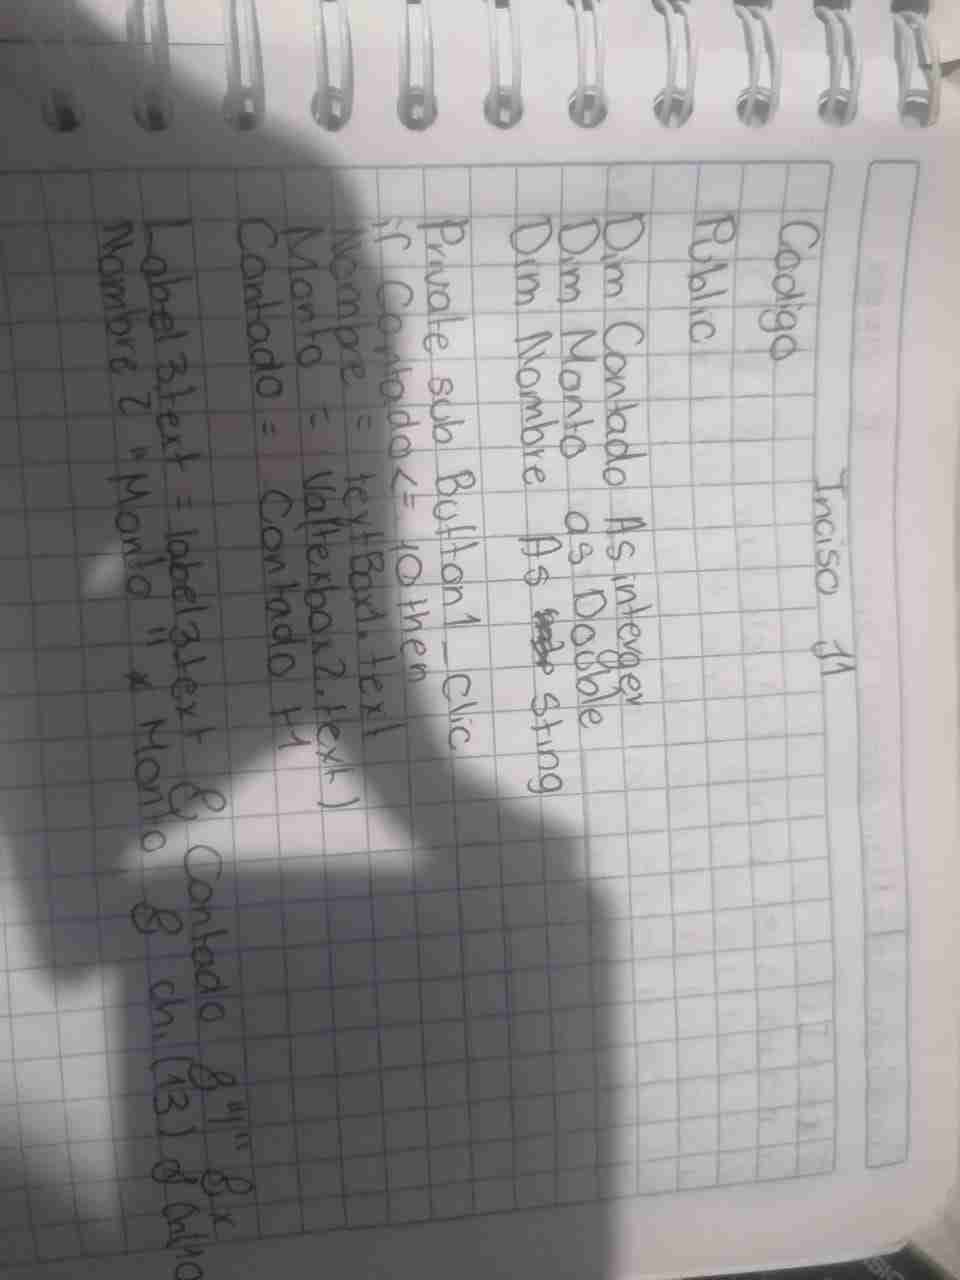 Inciso 11
Codigo
Public
Dim Contado As inteyer
Dim Monto as Double
Dim Nombre As Sting
Private sub Button1_Clic
if Contado <= 10 then
Nombre = textBox1.text
Monto = Val(texbox2.text)
Contado = Contado +1
Label3text = label3text & Contado & "1" &
Nombre & "Monto" * Monto & ch.(13) &